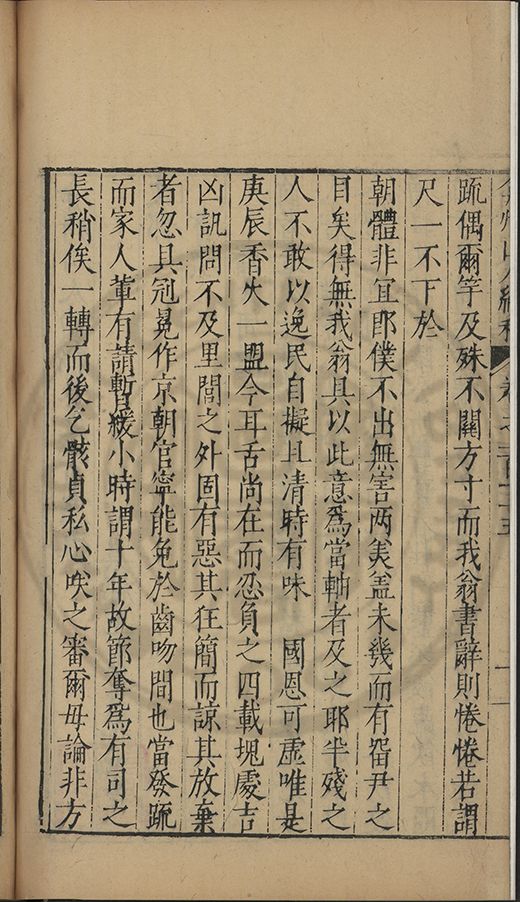 疏偶爾竿及殊不關方寸而我翁書辭則惓惓若謂
尺一不下於
朝體非宜郎僕不出無害两矣盖未幾而有留尹之
目矣得無我翁具以此意爲當軸者及之耶半殘之
人不敢以逸民自擬且清時有味　國恩可虛唯是
庚辰香火一盟今耳舌尚在而忍負之四載塊處吉
凶訊問不及里閭之外固有惡其狂簡而諒其放棄
者忽具冠冕作京朝官寧能免於齒吻間也當發疏
而家人輩有請暫緩小時謂十年故節奪爲有司之
長稍俟一轉而後乞骸貞私心唉之審爾毋論非方